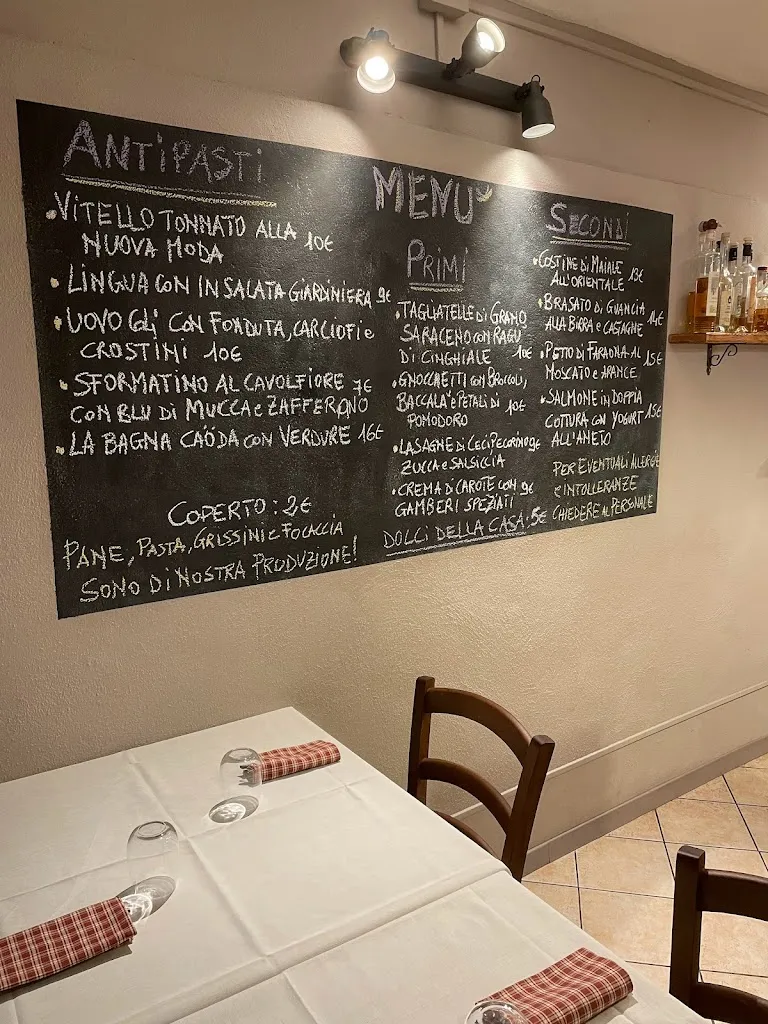 MENU
ANTIPASTI
VITELLO TONNATO ALLA
NUOVA MODA 10€
LINGUA CON INSALATA GIARDINIERA 9€
UOVO CON FONDUTA, CARCIOFI e
CROSTINI 10€
SFORMATINO AL CAVOLFIORE 7€
CON BLU DI MUCCA e ZAFFERANO
LA BAGNA CAÖDA CON VERDURE 16€
COPERTO: 2€
PANE, PASTA, GRISSINI e FOCACCIA
SONO DI NOSTRA PRODUZIONE!
PRIMI
TAGLIATELLE DI GRANO
SARACENO CON RAGÙ
DI CINGHIALE 10€
GNOCCHETTI CON BROCCOLI,
BACCALÀ e PETALI DI 10€
POMODORO
LASAGNE DI CECI PECORINO 9€
ZUCCA e SALSICCIA
CREMA DI CAROTE CON 9€
GAMBERI SPEZIATI
DOLCI DELLA CASA: 5€
SECONDI
COSTINE DI MAIALE 13€
ALL'ORIENTALE
BRASATO DI GUANCIA
ALLA BIRRA e CASTAGNE 14€
PETTO DI FARAONA AL 15€
MOSCATO e ARANCE
SALMONE IN DOPPIA
COTTURA CON YOGURT 15€
ALL'ANETO
PER EVENTUALI ALLERGIE
e INTOLLERANZE
CHIEDERE AL PERSONALE